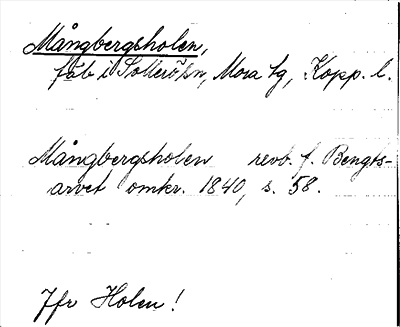 Mångbergsholen,
fäb i Sollerö sn, Mora tg, Kopp. l.
Mångbergsholen revb. f. Bengts-
arvet omkr. 1840, s. 58.
Jfr Holen!